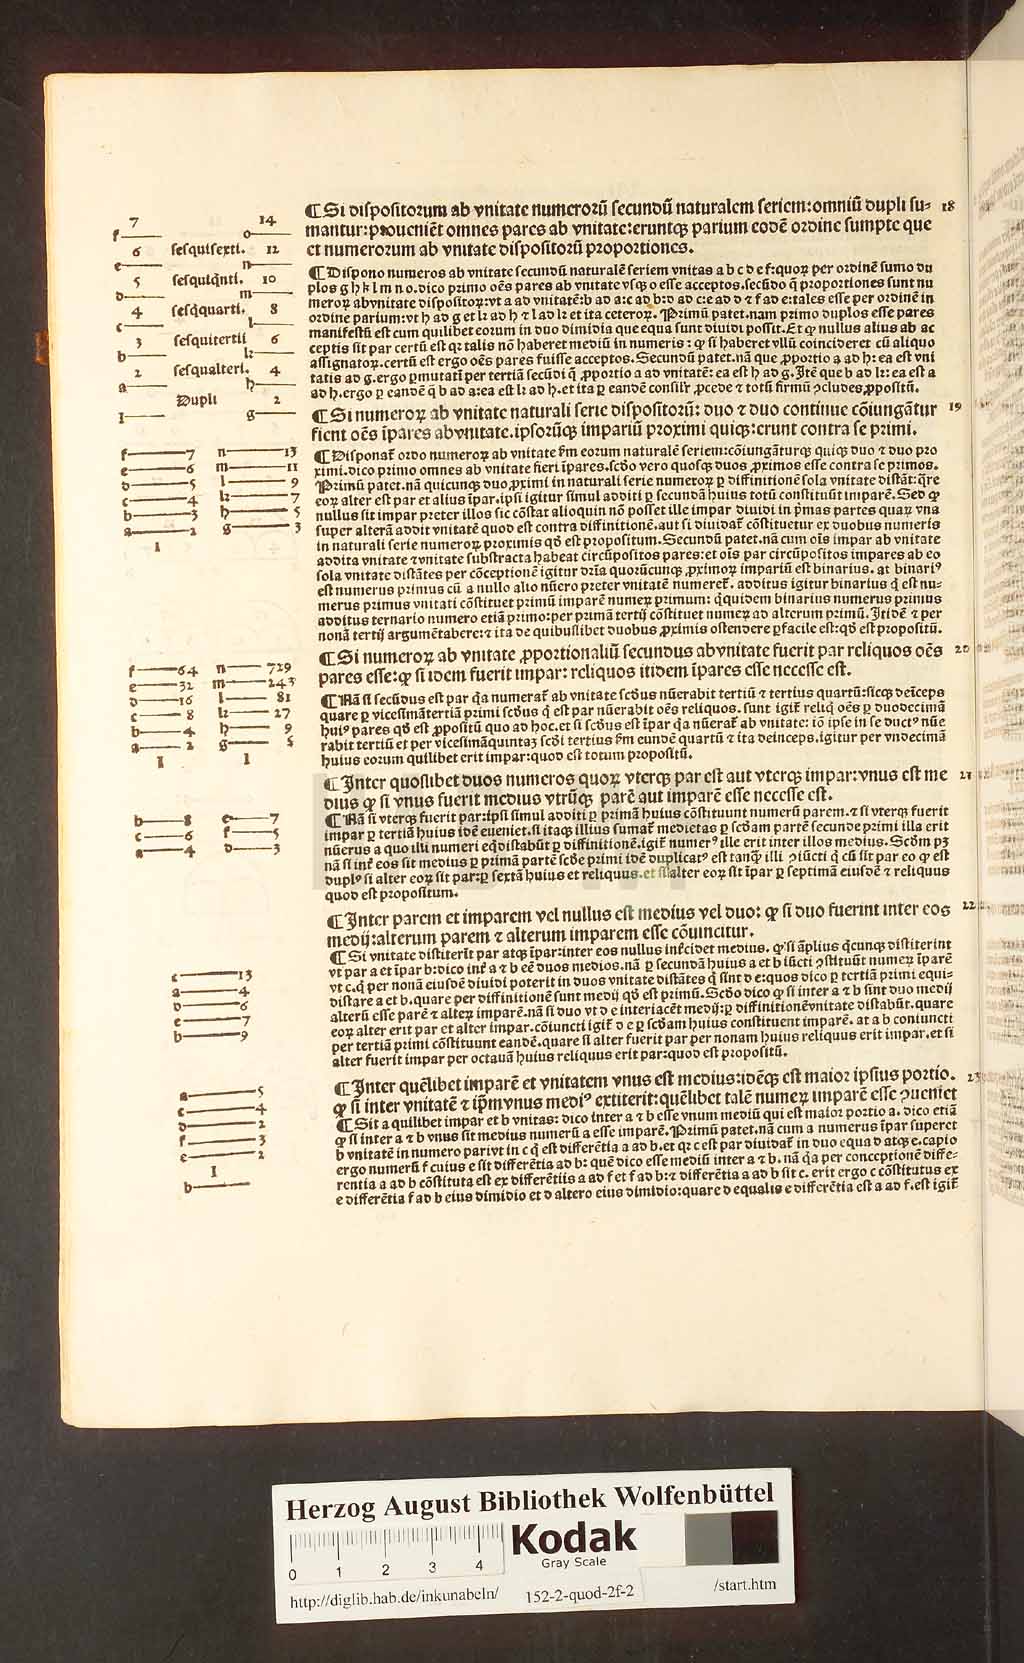 7 14
f o
6 sesquisexti. 12
e n
5 sesquiq̃nti. 10
d m
4 sesq̃quarti. 8
c l
3 sesquitertii 6
b k
2 sesqualteri. 4
a h
Dupli 2
1 g
¶ Si dispositorum ab vnitate numerorũ secundũ naturalem seriem: omniũ dupli su⸗ 18
mantur: proueniẽt omnes pares ab vnitate: eruntqꝫ parium eodẽ ordine sumpte que
et numerorum ab vnitate dispositorũ proportiones.
¶ Dispono numeros ab vnitate secundũ naturalẽ seriem vnitas a b c d e f: quoꝝ per ordinẽ sumo du
plos g h k l m n o. dico primo oẽs pares ab vnitate vsqꝫ o esse acceptos. secũdo q̃ proportiones sunt nu
meroꝝ ab vnitate dispositoꝝ: vt a ad vnitatẽ: b ad a: c ad b: d ad c: e ad d ⁊ f ad e: tales esse per ordinẽ in
ordine parium: vt h ad g et k ad h ⁊ l ad k et ita ceteroꝝ. Primũ patet. nam primo duplos esse pares
manifestũ est cum quilibet eorum in duo dimidia que equa sunt diuidi possit. Et ꝙ nullus alius ab ac
ceptis sit par certũ est qꝛ talis nõ haberet mediũ in numeris: ꝙ si haberet vllũ coincideret cũ aliquo
assignatoꝝ. certũ est ergo oẽs pares fuisse acceptos. Secundũ patet. nã que ꝓportio a ad h: ea est vni
tatis ad g. ergo ꝑmutatĩ per tertiã secũdi q̃ ꝓportio a ad vnitatẽ: ea est h ad g. Itẽ que b ad k: ea est a
ad h. ergo ꝑ eandẽ q̃ b ad a: ea est k ad h. et ita ꝑ eandẽ consilr̃ ꝓcede ⁊ totũ firmũ ꝯcludes ꝓpositũ.
¶ Si numeroꝝ ab vnitate naturali serie dispositorũ: duo ⁊ duo continue cõiungãtur 19
fient oẽs ĩpares ab vnitate. ipsorũqꝫ impariũ proximi quiqꝫ: erunt contra se primi.
f 7 n 13
e 6 m 11
d 5 l 9
c 4 k 7
b 3 h 5
a 2 g 3
1
¶ Disponat̃ ordo numeroꝝ ab vnitate ẽm eorum naturalẽ seriem: cõiungãturqꝫ quiqꝫ duo ⁊ duo pro
ximi. dico primo omnes ab vnitate fieri ĩpares. scdo vero quosqꝫ duos ꝓximos esse contra se primos.
Primũ patet. nã quicunqꝫ duo ꝓximi in naturali serie numeroꝝ ꝑ diffinitionẽ sola vnitate distãt: q̃re
eoꝝ alter est par et alius ĩpar. ipsi igitur simul additi ꝑ secundã huius totũ constituũt imparẽ. Sed ꝙ
nullus sit impar preter illos sic cõstat alioquin nõ posset ille impar diuidi in p̃mas partes quaꝝ vna
super alterã addit vnitatẽ quod est contra diffinitionẽ. aut si diuidat̃ cõstituetur ex duobus numeris
in naturali serie numeroꝝ proximis qd̃ est propositum. Secundũ patet. nã cum oĩs impar ab vnitate
addita vnitate ⁊ vnitate substracta habeat circũpositos pares: et oĩs par circũpositos impares ab eo
sola vnitate distãtes per cõceptionẽ igitur dr̃ia quorũcunqꝫ ꝓximoꝝ impariũ est binarius. at binariꝰ
est numerus primus cũ a nullo alio nũero preter vnitatẽ numeret̃. additus igitur binarius q̃ est nu⸗
merus primus vnitati cõstituet primũ imparẽ numeꝝ primum: q̃quidem binarius numerus primus
additus ternario numero etiã primo: per primã tertij cõstituet numeꝝ ad alterum primũ. Itidẽ ⁊ per
nonã tertij argumẽtabere: ⁊ ita de quibuslibet duobus ꝓximis ostendere ꝑfacile est: qd̃ est propositũ.
¶ Si numeroꝝ ab vnitate ꝓportionaliũ secundus ab vnitate fuerit par reliquos oẽs 20
pares esse: ꝙ si idem fuerit impar: reliquos itidem ĩpares esse necesse est.
f 64 n 729
e 32 m 243
d 16 l 81
c 8 k 27
b 4 h 9
a 2 g 3
1 1
¶ Nã si secũdus est par q̃a numerat̃ ab vnitate scdus nũerabit tertiũ ⁊ tertius quartũ: sicqꝫ deĩceps
quare ꝑ vicesimã tertiã primi scdus q̃ est par nũerabit oẽs reliquos. sunt igit̃ reliq̃ oẽs ꝑ duodecimã
huiꝰ pares qd̃ est ꝓpositũ quo ad hoc. et si scdus est ĩpar q̃a nũerat̃ ab vnitate: iõ ipse in se ductꝰ nũe
rabit tertiũ et per vicesimãquintaꝫ scdi tertius ẽm eundẽ quartũ ⁊ ita deinceps. igitur per vndecimã
huius eorum quilibet erit impar: quod est totum propositũ.
¶ Inter quoslibet duos numeros quoꝝ vterqꝫ par est aut vterqꝫ impar: vnus est me 21
dius ꝙ si vnus fuerit medius vtrũqꝫ parẽ aut imparẽ esse necesse est.
b 8 e 7
c 6 f 5
a 4 d 3
¶ Nã si vterqꝫ fuerit par: ipsi simul additi ꝑ primã huius cõstituunt numerũ parem. ⁊ si vterqꝫ fuerit
impar ꝑ tertiã huius idẽ eueniet. si itaqꝫ illius sumat̃ medietas ꝑ scdam partẽ secunde primi illa erit
nũerus a quo illi numeri eq̃distabũt ꝑ diffinitionẽ. igit̃ numerꝰ ille erit inter illos medius. Scdm pꝫ
nã si int̃ eos sit medius ꝑ primã partẽ scde primi idẽ duplicatꝰ est tanq̃ illi ꝯiũcti q̃ cũ sit par eo ꝙ est
duplꝰ si alter eoꝝ sit par: ꝑ sextã huius et reliquus. et si alter eoꝝ sit ĩpar ꝑ septimã eiusdẽ ⁊ reliquus
quod est propositum.
¶ Inter parem et imparem vel nullus est medius vel duo: ꝙ si duo fuerint inter eos 22
medij: alterum parem ⁊ alterum imparem esse cõuincitur.
c 13
a 4
d 6
e 7
b 9
¶ Si vnitate distiterĩt par atqꝫ ĩpar: inter eos nullus int̃cidet medius. ꝙ si ãplius q̃cunqꝫ distiterint
vt par a et ĩpar b: dico int̃ a ⁊ b eẽ duos medios. nã ꝑ secundã huius a et b iũcti ꝯstituũt numeꝝ ĩparẽ
vt c. q̃ per nonã eiusdẽ diuidi poterit in duos vnitate distãtes q̃ sint d e: quos dico ꝑ tertiã primi equi⸗
distare a et b. quare per diffinitionẽ sunt medij qd̃ est primũ. Scdo dico ꝙ si inter a ⁊ b sint duo medij
alterũ esse parẽ ⁊ alteꝝ imparẽ. nã si duo vt d e interiacẽt medij: ꝑ diffinitionẽ vnitate distabũt. quare
eoꝝ alter erit par et alter impar. cõiuncti igit̃ d e ꝑ scdam huius constituent imparẽ. at a b coniuncti
per tertiã primi cõstituunt eandẽ. quare si alter fuerit par per nonam huius reliquus erit impar. et si
alter fuerit impar per octauã huius reliquus erit par: quod est propositũ.
¶ Inter quẽlibet imparẽ et vnitatem vnus est medius: idẽqꝫ est maior ipsius portio. 23
ꝙ si inter vnitatẽ ⁊ ip̃m vnus mediꝰ extiterit: quẽlibet talẽ numeꝝ imparẽ esse ꝯueniet
a 5
c 4
d 2
f 3
e 2
1
b
¶ Sit a quilibet impar et b vnitas: dico inter a ⁊ b esse vnum mediũ qui est maior portio a. dico etiã
ꝙ si inter a ⁊ b vnus sit medius numerũ a esse imparẽ. Primũ patet. nã cum a numerus ĩpar superet
b vnitatẽ in numero pari vt in c q̃ est differẽtia a ad b. et qꝛ c est par diuidat̃ in duo equa d atqꝫ e. capio
ergo numerũ f cuius e sit differẽtia ad b: quẽ dico esse mediũ inter a ⁊ b. nã q̃a per conceptionẽ diffe⸗
rentia a ad b cõstituta est ex differẽtiis a ad f et f ad b: ⁊ differẽtia a ad b sit c. erit ergo c cõstitutus ex
e differẽtia f ad b eius dimidio et d altero eius dimidio: quare d equalis e differẽtia est a ad f. est igit̃
Herzog August Bibliothek Wolfenbüttel
Kodak
Gray Scale
0 1 2 3 4
http://diglib.hab.de/inkunabeln/ 152-2-quod-2f-2 /start.htm